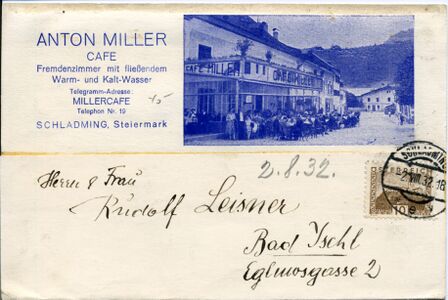 ANTON MILLER
CAFE
Fremdenzimmer mit fließendem
Warm- und Kalt-Wasser
Telegramm-Adresse:
MILLERCAFE
Telephon Nr. 19
SCHLADMING, Steiermark
CAFE MILLER
2.8.32.
Herrn & Frau
Rudolf Leisner
Bad Ischl
Eglmosgasse 2
SCHLADMING
2.VIII.32.18
ÖSTERREICH
10 g